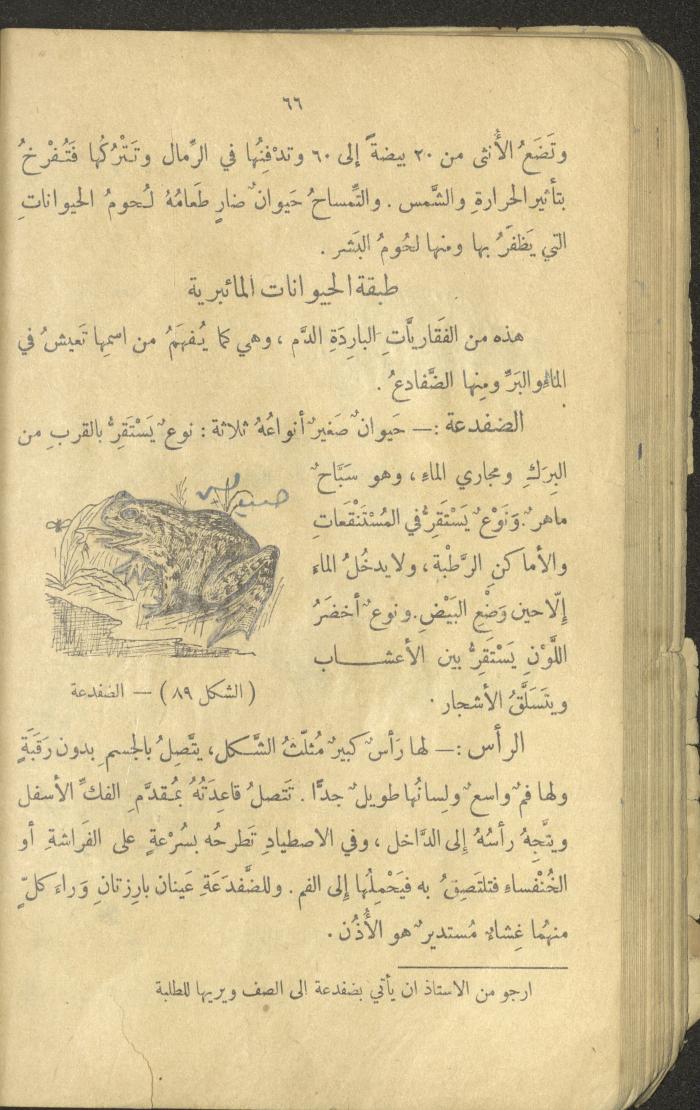 ٦٦
وتَضَعُ الأُنثى من ٢٠ بيضةً إلى ٦٠ وتدْفِنُها في الرِّمال وتَتْرُكُها فَتُفْرخُ
بتأثير الحرارةِ والشَّمس . والتِّمساحُ حَيوانٌ ضارٍ طَعامُهُ لُحومُ الحيواناتِ
التي يَظفَرُ بها ومنها لحُومُ البَشر .
طبقة الحيوانات المائبرية
هذه من الفَقَاريَّاتِ البارِدَةِ الدَّم ، وهي كما يُفهَمُ من اسمِها تَعيشُ في
الماءِ والبَرِّ ومِنها الضَّفادعُ .
الضفدعة :— حَيوانٌ صَغيرٌ أنواعُهُ ثلاثة : نوعٌ يَسْتَقِرُّ بالقربِ من
البِرَكِ ومجاري الماءِ ، وهو سَبَّاحٌ
ماهرٌ . وَنَوْعٌ يَسْتَقِرُّ في المُسْتَنْقَعاتِ
والأماكنِ الرَّطْبة ، ولا يدخُلُ الماء
إِلّا حين وَضْعِ البَيْضِ . ونوعٌ أخضَرُ
اللَّوْنِ يَسْتَقِرُّ بين الأعشـــاب
ويتَسَلَّقُ الأشجار .
(الشكل ٨٩) — الضفدعة
الرأس :— لها رَأسٌ كبيرٌ مُثلّثُ الشَّكل، يتَّصِلُ بالجسم بدون رَقَبَةٍ
ولها فمٌ واسعٌ ولِسانُها طويلٌ جدًّا . تَتَصلُ قاعِدَتُهُ بمُقدَّمِ الفكِّ الأسفل
ويتَّجِهُ رأسُهُ إِلى الدَّاخل ، وفي الاصطيادِ تَطرحُه بسُرْعةٍ على الفَراشةِ أو
الخُنْفساءِ فتلتَصِقُ به فيَحْمِلُها إِلى الفم . وللضَّفدَعَةِ عَينان بارِزتانِ وَراءَ كلّ
منهُما غِشاءٌ مُستديرٌ هو الأُذُن .
ارجو من الاستاذ ان يأتي بضفدعة الى الصف ويريها للطلبة